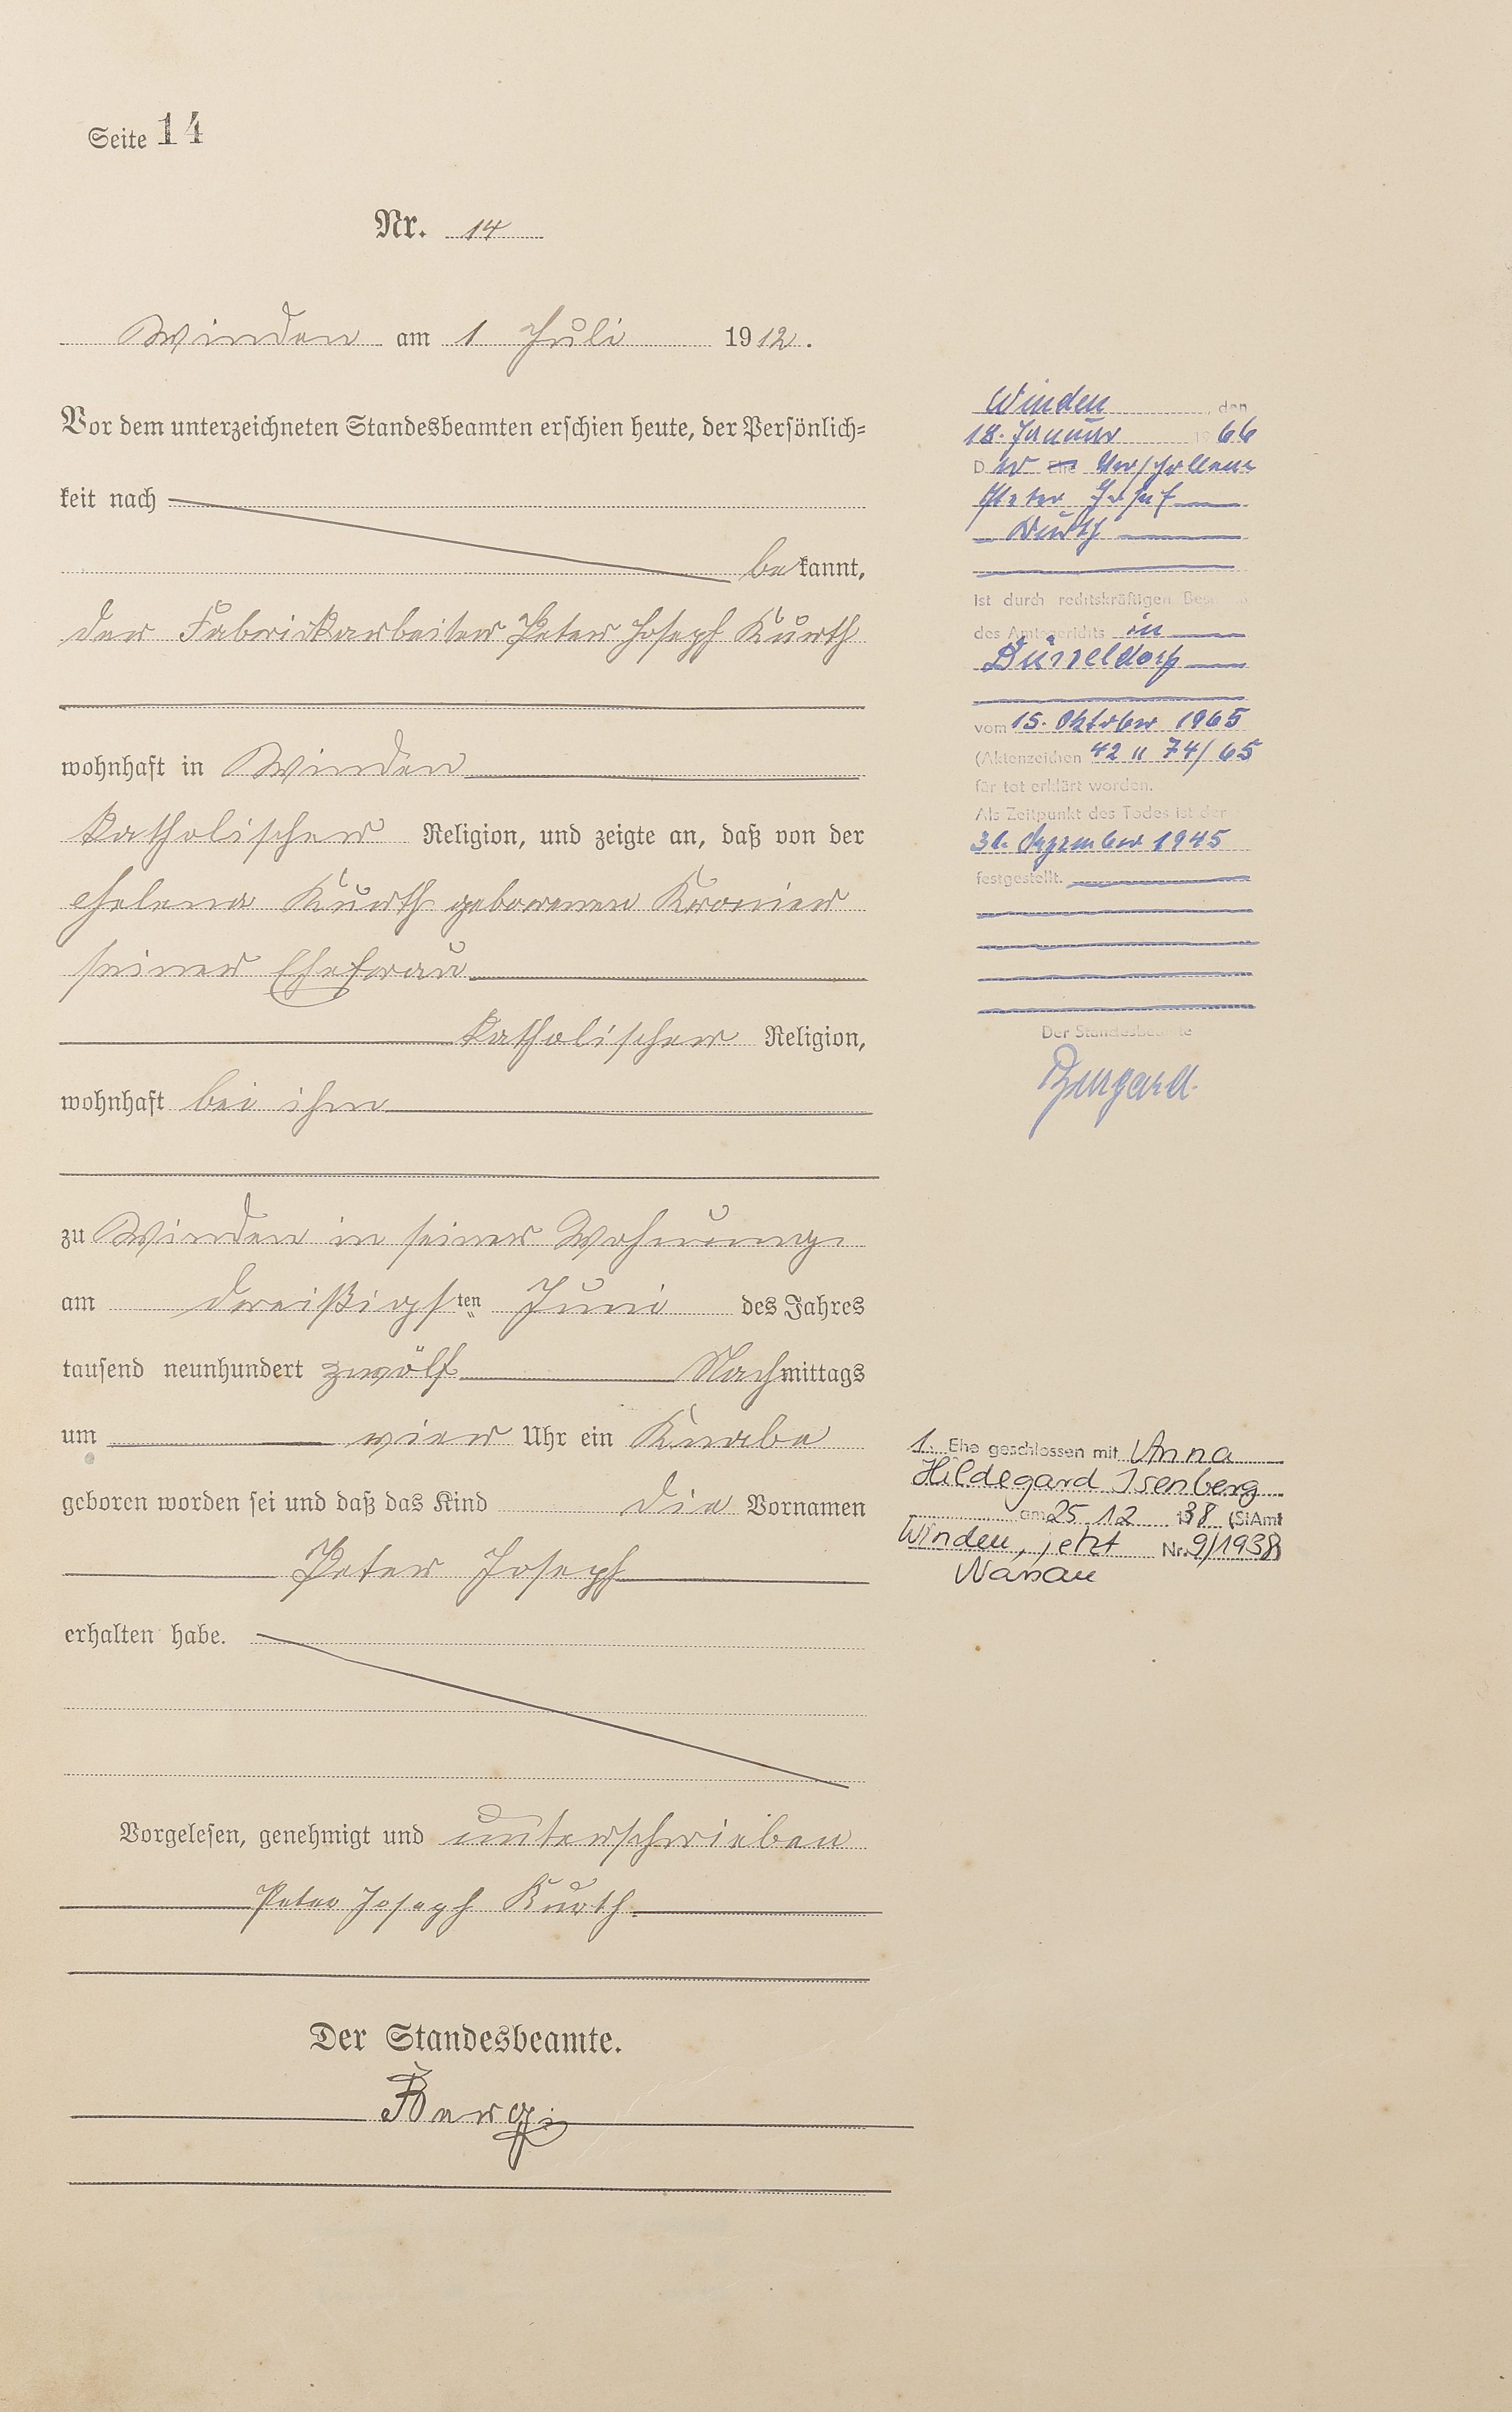 Seite 14
Nr. 14
Winden am 1 Juli 1912.
Vor dem unterzeichneten Standesbeamten erschien heute, der Persönlich=
keit nach
bekannt,
der Fabrikarbeiter Peter Joseph Kurth
wohnhaft in Winden
katholischer Religion, und zeigte an, daß von der
Helena Kurth geborenen Kronier
seiner Ehefrau
katholischer Religion,
wohnhaft bei ihm
zu Winden in seiner Wohnung
am dreißigsten Juni des Jahres
tausend neunhundert zwölf Nachmittags
um vier Uhr ein Knabe
geboren worden sei und daß das Kind die Vornamen
Peter Joseph
erhalten habe.
Vorgelesen, genehmigt und unterschrieben
Peter Joseph Kurth
Der Standesbeamte.
Berg
Winden, den
18. Januar 1966
Der Verschollene
Peter Josef
Kurth
ist durch rechtskräftigen Beschluß
des Amtsgerichts in
Düsseldorf
vom 15. Oktober 1965
(Aktenzeichen 42 II 74/65
für tot erklärt worden.
Als Zeitpunkt des Todes ist der
31. Dezember 1945
festgestellt.
Der Standesbeamte
1. Ehe geschlossen mit Anna
Hildegard Isenberg
am 25.12.1938 (StAmt
Winden, jetzt Nr. 9/1938)
Nassau